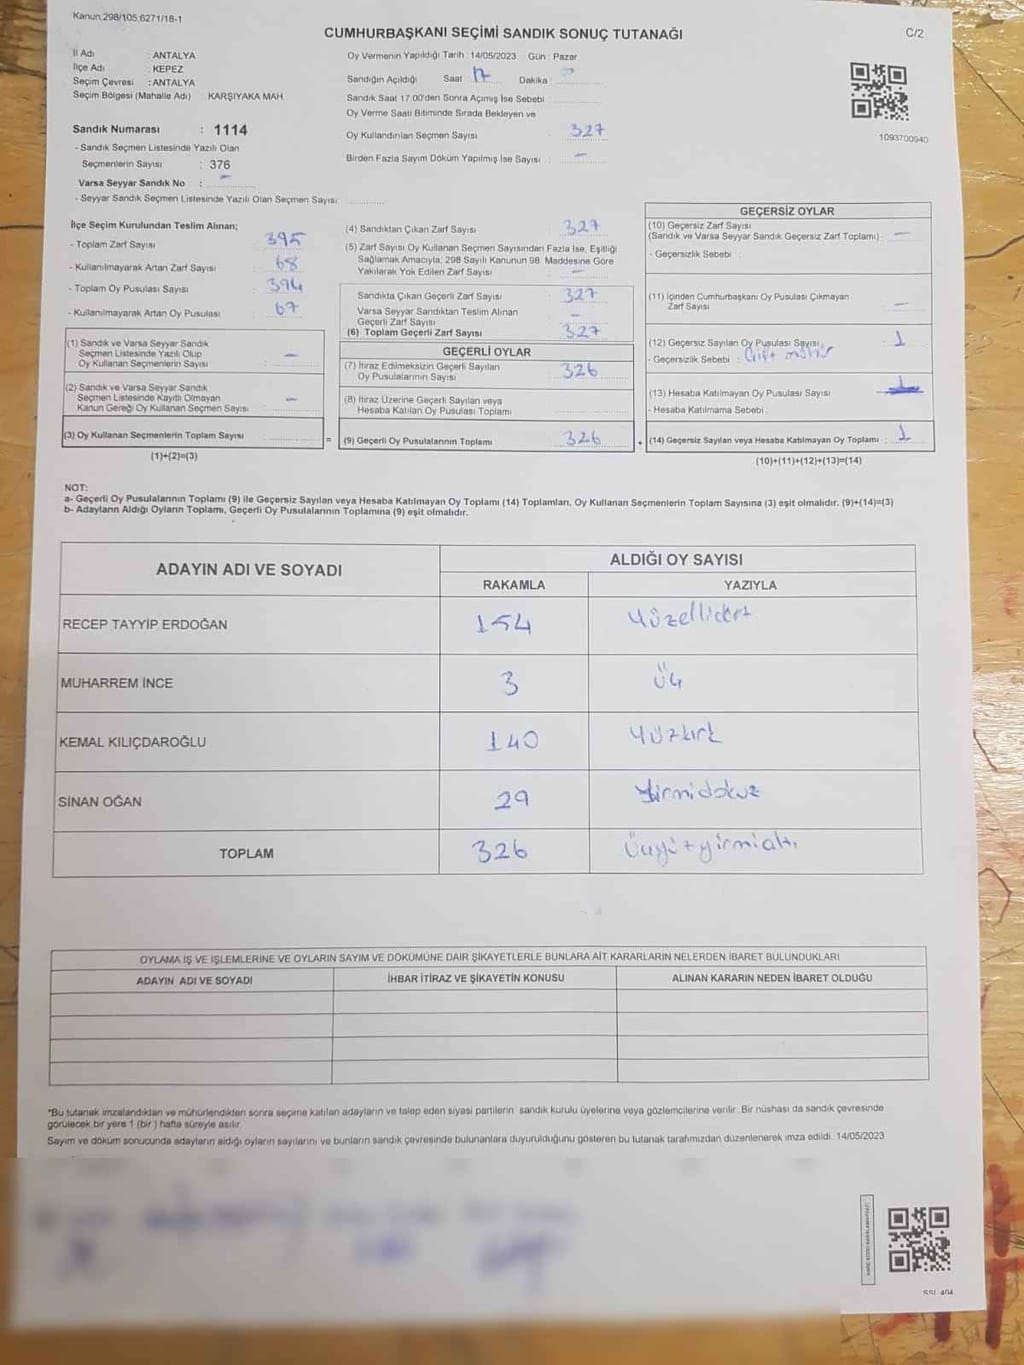 Kanun 298/105,6271/18-1
CUMHURBAŞKANI SEÇİMİ SANDIK SONUÇ TUTANAĞI
C/2
İl Adı : ANTALYA
İlçe Adı : KEPEZ
Seçim Çevresi : ANTALYA
Seçim Bölgesi (Mahalle Adı) : KARŞIYAKA MAH.
Sandık Numarası : 1114
- Sandık Seçmen Listesinde Yazılı Olan
Seçmenlerin Sayısı : 376
Varsa Seyyar Sandık No : -
- Seyyar Sandık Seçmen Listesinde Yazılı Olan Seçmen Sayısı:
Oy Vermenin Yapıldığı Tarih : 14/05/2023 Gün : Pazar
Sandığın Açıldığı Saat : 17 Dakika :
Sandık Saat 17.00'den Sonra Açımış İse Sebebi :
Oy Verme Saati Bitiminde Sırada Bekleyen ve
Oy Kullandırılan Seçmen Sayısı : 327
Birden Fazla Sayım Döküm Yapılmış İse Sayısı : -
1093700940
İlçe Seçim Kurulundan Teslim Alınan;
- Toplam Zarf Sayısı : 395
- Kullanılmayarak Artan Zarf Sayısı : 68
- Toplam Oy Pusulası Sayısı : 394
- Kullanılmayarak Artan Oy Pusulası : 67
(1) Sandık ve Varsa Seyyar Sandık
Seçmen Listesinde Yazılı Olup
Oy Kullanan Seçmenlerin Sayısı : -
(2) Sandık ve Varsa Seyyar Sandık
Seçmen Listesinde Kayıtlı Olmayan
Kanun Gereği Oy Kullanan Seçmen Sayısı : -
(3) Oy Kullanan Seçmenlerin Toplam Sayısı :
(1)+(2)=(3)
=
(4) Sandıktan Çıkan Zarf Sayısı : 327
(5) Zarf Sayısı Oy Kullanan Seçmen Sayısından Fazla İse, Eşitliği
Sağlamak Amacıyla; 298 Sayılı Kanunun 98. Maddesine Göre
Yakılarak Yok Edilen Zarf Sayısı : -
Sandıkta Çıkan Geçerli Zarf Sayısı : 327
Varsa Seyyar Sandıktan Teslim Alınan
Geçerli Zarf Sayısı : -
(6) Toplam Geçerli Zarf Sayısı : 327
GEÇERLİ OYLAR
(7) İtiraz Edilmeksizin Geçerli Sayılan
Oy Pusulalarının Sayısı : 326
(8) İtiraz Üzerine Geçerli Sayılan veya
Hesaba Katılan Oy Pusulası Toplamı :
(9) Geçerli Oy Pusulalarının Toplamı : 326
+
GEÇERSİZ OYLAR
(10) Geçersiz Zarf Sayısı
(Sandık ve Varsa Seyyar Sandık Geçersiz Zarf Toplamı) : -
- Geçersizlik Sebebi :
(11) İçinden Cumhurbaşkanı Oy Pusulası Çıkmayan
Zarf Sayısı : -
(12) Geçersiz Sayılan Oy Pusulası Sayısı : 1
- Geçersizlik Sebebi : Çift mühür
(13) Hesaba Katılmayan Oy Pusulası Sayısı :
- Hesaba Katılmama Sebebi :
(14) Geçersiz Sayılan veya Hesaba Katılmayan Oy Toplamı : 1
(10)+(11)+(12)+(13)=(14)
NOT:
a- Geçerli Oy Pusulalarının Toplamı (9) ile Geçersiz Sayılan veya Hesaba Katılmayan Oy Toplamı (14) Toplamları, Oy Kullanan Seçmenlerin Toplam Sayısına (3) eşit olmalıdır. (9)+(14)=(3)
b- Adayların Aldığı Oyların Toplamı, Geçerli Oy Pusulalarının Toplamına (9) eşit olmalıdır.
ADAYIN ADI VE SOYADI
ALDIĞI OY SAYISI
RAKAMLA YAZIYLA
RECEP TAYYİP ERDOĞAN 154 Yüzellidört
MUHARREM İNCE 3 Üç
KEMAL KILIÇDAROĞLU 140 Yüzkırk
SİNAN OĞAN 29 Yirmidokuz
TOPLAM 326 Üçyüzyirmialtı
OYLAMA İŞ VE İŞLEMLERİNE VE OYLARIN SAYIM VE DÖKÜMÜNE DAİR ŞİKAYETLERLE BUNLARA AİT KARARLARIN NELERDEN İBARET BULUNDUKLARI
ADAYIN ADI VE SOYADI İHBAR İTİRAZ VE ŞİKAYETİN KONUSU ALINAN KARARIN NEDEN İBARET OLDUĞU
*Bu tutanak imzalandıktan ve mühürlendikten sonra seçime katılan adayların ve talep eden siyasi partilerin sandık kurulu üyelerine veya gözlemcilerine verilir. Bir nüshası da sandık çevresinde
görülecek bir yere 1 (bir) hafta süreyle asılır.
Sayım ve döküm sonucunda adayların aldığı oyların sayılarını ve bunların sandık çevresinde bulunanlara duyurulduğunu gösteren bu tutanak tarafımızdan düzenlenerek imza edildi. 14/05/2023